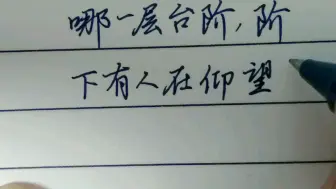 哪一层台阶,阶
下有人在仰望